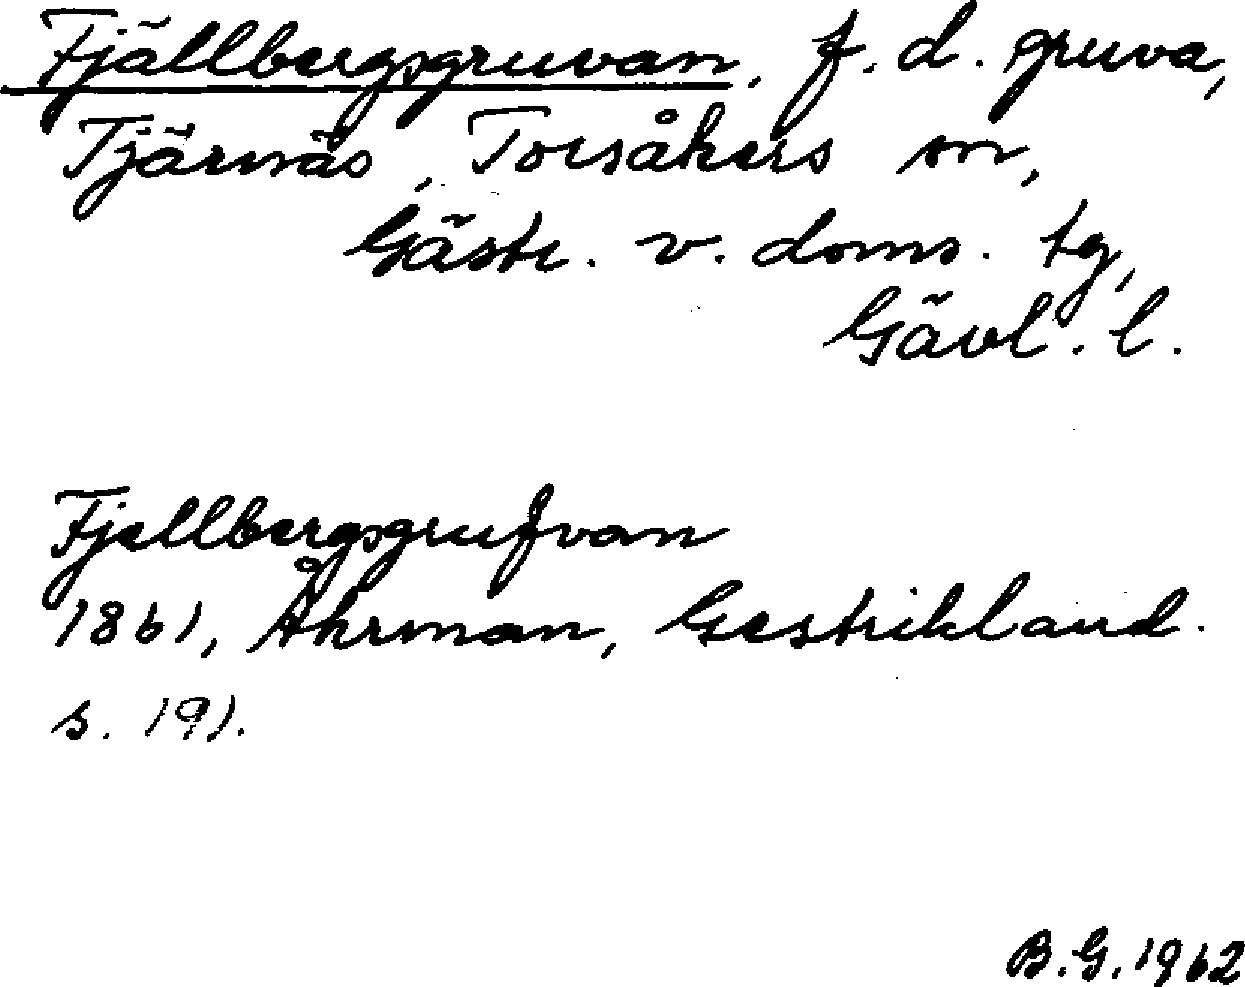 Fjällbergsgruvan, f.d. gruva,
Tjärnäs, Torsåkers sn,
Gästr. v. doms. tg,
Gävl. l.
Fjellbergsgrufvan
1861, Åhrman, Gestrikland.
s. 191.
B.G. 1962